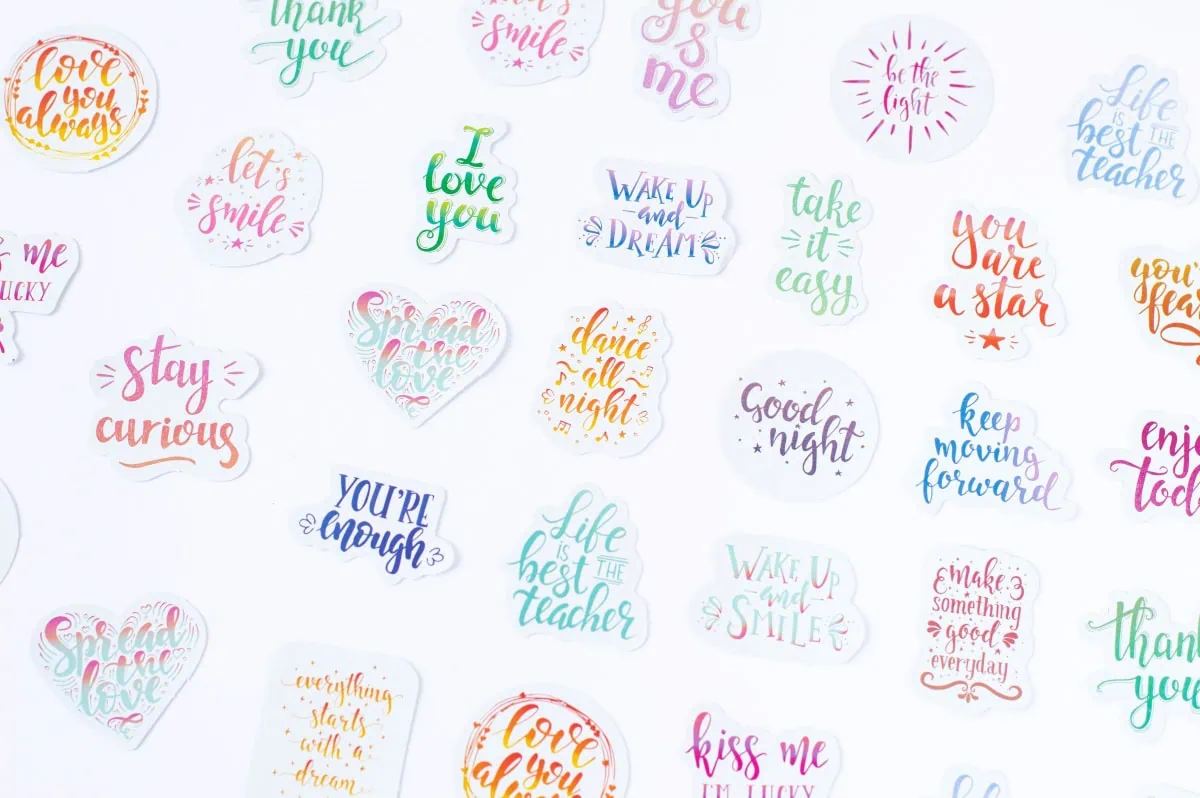 love
you
always
thank
you
let's
smile
you
&
me
be the
light
Life
IS
best THE
teacher
let's
smile
I
love
you
WAKE UP
and
DREAM
take
it
easy
you
are
a star
me
LUCKY
Spread
the
love
dance
all
night
Good
night
keep
moving
forward
stay
curious
YOU'RE
enough
Life
IS
best THE
teacher
WAKE UP
and
SMILE
make
something
good
everyday
thank
you
Spread
the
love
everything
starts
with a
dream
love
you
always
kiss me
I'M LUCKY